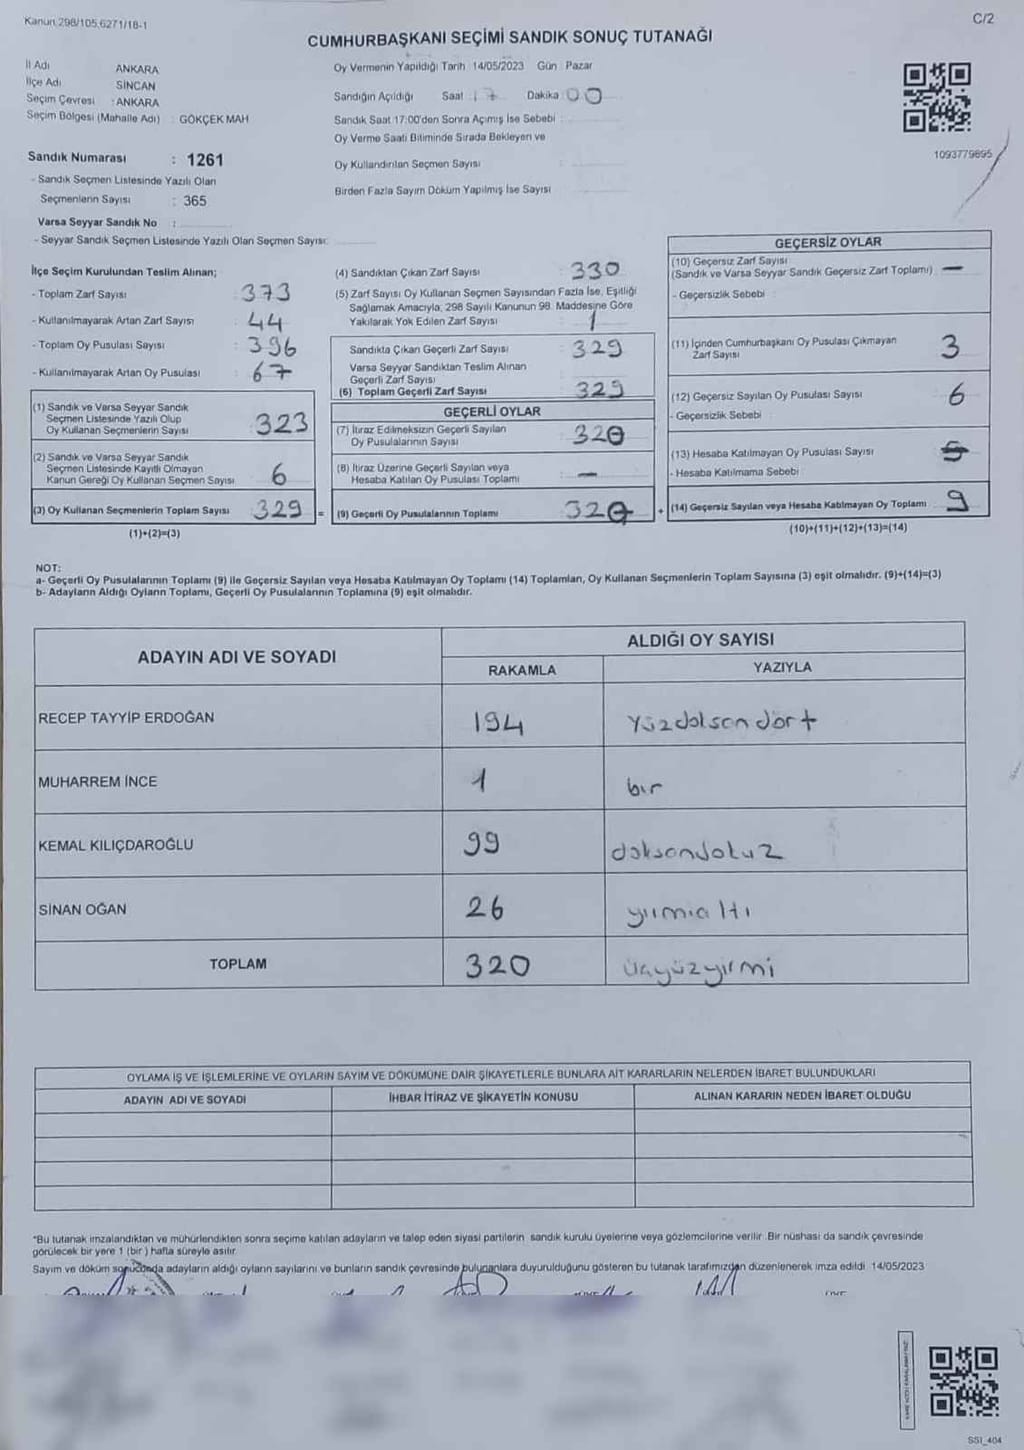 Kanun 298/105,6271/18-1
C/2
CUMHURBAŞKANI SEÇİMİ SANDIK SONUÇ TUTANAĞI
İl Adı ANKARA
İlçe Adı SİNCAN
Seçim Çevresi : ANKARA
Seçim Bölgesi (Mahalle Adı) : GÖKÇEK MAH
Oy Vermenin Yapıldığı Tarih 14/05/2023 Gün Pazar
Sandığın Açıldığı Saat Dakika 00
Sandık Saat 17:00'den Sonra Açımış İse Sebebi :
Oy Verme Saati Bitiminde Sırada Bekleyen ve
Oy Kullandırılan Seçmen Sayısı
Birden Fazla Sayım Döküm Yapılmış İse Sayısı
1093779895
Sandık Numarası : 1261
- Sandık Seçmen Listesinde Yazılı Olan
Seçmenlerin Sayısı : 365
Varsa Seyyar Sandık No :
- Seyyar Sandık Seçmen Listesinde Yazılı Olan Seçmen Sayısı:
İlçe Seçim Kurulundan Teslim Alınan;
- Toplam Zarf Sayısı : 373
- Kullanılmayarak Artan Zarf Sayısı : 44
- Toplam Oy Pusulası Sayısı : 396
- Kullanılmayarak Artan Oy Pusulası : 67
(1) Sandık ve Varsa Seyyar Sandık
Seçmen Listesinde Yazılı Olup
Oy Kullanan Seçmenlerin Sayısı 323
(2) Sandık ve Varsa Seyyar Sandık
Seçmen Listesinde Kayıtlı Olmayan
Kanun Gereği Oy Kullanan Seçmen Sayısı 6
(3) Oy Kullanan Seçmenlerin Toplam Sayısı 329 =
(1)+(2)=(3)
(4) Sandıktan Çıkan Zarf Sayısı 330
(5) Zarf Sayısı Oy Kullanan Seçmen Sayısından Fazla İse, Eşitliği
Sağlamak Amacıyla, 298 Sayılı Kanunun 98. Maddesine Göre
Yakılarak Yok Edilen Zarf Sayısı 1
Sandıkta Çıkan Geçerli Zarf Sayısı : 329
Varsa Seyyar Sandıktan Teslim Alınan
Geçerli Zarf Sayısı
(6) Toplam Geçerli Zarf Sayısı 329
GEÇERLİ OYLAR
(7) İtiraz Edilmeksizin Geçerli Sayılan
Oy Pusulalarının Sayısı 320
(8) İtiraz Üzerine Geçerli Sayılan veya
Hesaba Katılan Oy Pusulası Toplamı —
(9) Geçerli Oy Pusulalarının Toplamı 320 +
GEÇERSİZ OYLAR
(10) Geçersiz Zarf Sayısı
(Sandık ve Varsa Seyyar Sandık Geçersiz Zarf Toplamı) —
- Geçersizlik Sebebi :
(11) İçinden Cumhurbaşkanı Oy Pusulası Çıkmayan
Zarf Sayısı 3
(12) Geçersiz Sayılan Oy Pusulası Sayısı 6
- Geçersizlik Sebebi :
(13) Hesaba Katılmayan Oy Pusulası Sayısı
- Hesaba Katılmama Sebebi :
(14) Geçersiz Sayılan veya Hesaba Katılmayan Oy Toplamı 9
(10)+(11)+(12)+(13)=(14)
NOT:
a- Geçerli Oy Pusulalarının Toplamı (9) ile Geçersiz Sayılan veya Hesaba Katılmayan Oy Toplamı (14) Toplamları, Oy Kullanan Seçmenlerin Toplam Sayısına (3) eşit olmalıdır. (9)+(14)=(3)
b- Adayların Aldığı Oyların Toplamı, Geçerli Oy Pusulalarının Toplamına (9) eşit olmalıdır.
ADAYIN ADI VE SOYADI ALDIĞI OY SAYISI
RAKAMLA YAZIYLA
RECEP TAYYİP ERDOĞAN 194 Yüzdoksan dört
MUHARREM İNCE 1 bir
KEMAL KILIÇDAROĞLU 99 doksandokuz
SİNAN OĞAN 26 yirmialtı
TOPLAM 320 üçyüzyirmi
OYLAMA İŞ VE İŞLEMLERİNE VE OYLARIN SAYIM VE DÖKÜMÜNE DAİR ŞİKAYETLERLE BUNLARA AİT KARARLARIN NELERDEN İBARET BULUNDUKLARI
ADAYIN ADI VE SOYADI İHBAR İTİRAZ VE ŞİKAYETİN KONUSU ALINAN KARARIN NEDEN İBARET OLDUĞU
*Bu tutanak imzalandıktan ve mühürlendikten sonra seçime katılan adayların ve talep eden siyasi partilerin sandık kurulu üyelerine veya gözlemcilerine verilir. Bir nüshası da sandık çevresinde
görülecek bir yere 1 (bir) hafta süreyle asılır.
Sayım ve döküm sonucunda adayların aldığı oyların sayılarını ve bunların sandık çevresinde bulunanlara duyurulduğunu gösteren bu tutanak tarafımızdan düzenlenerek imza edildi. 14/05/2023
SSI_404